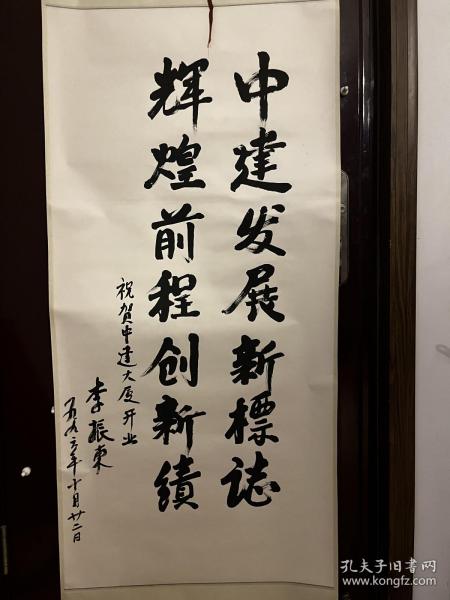 中建发展新標誌
辉煌前程创新绩
祝贺中建大厦开业
李振东
一九九六年十月廿二日
孔夫子旧书网
www.kongfz.com